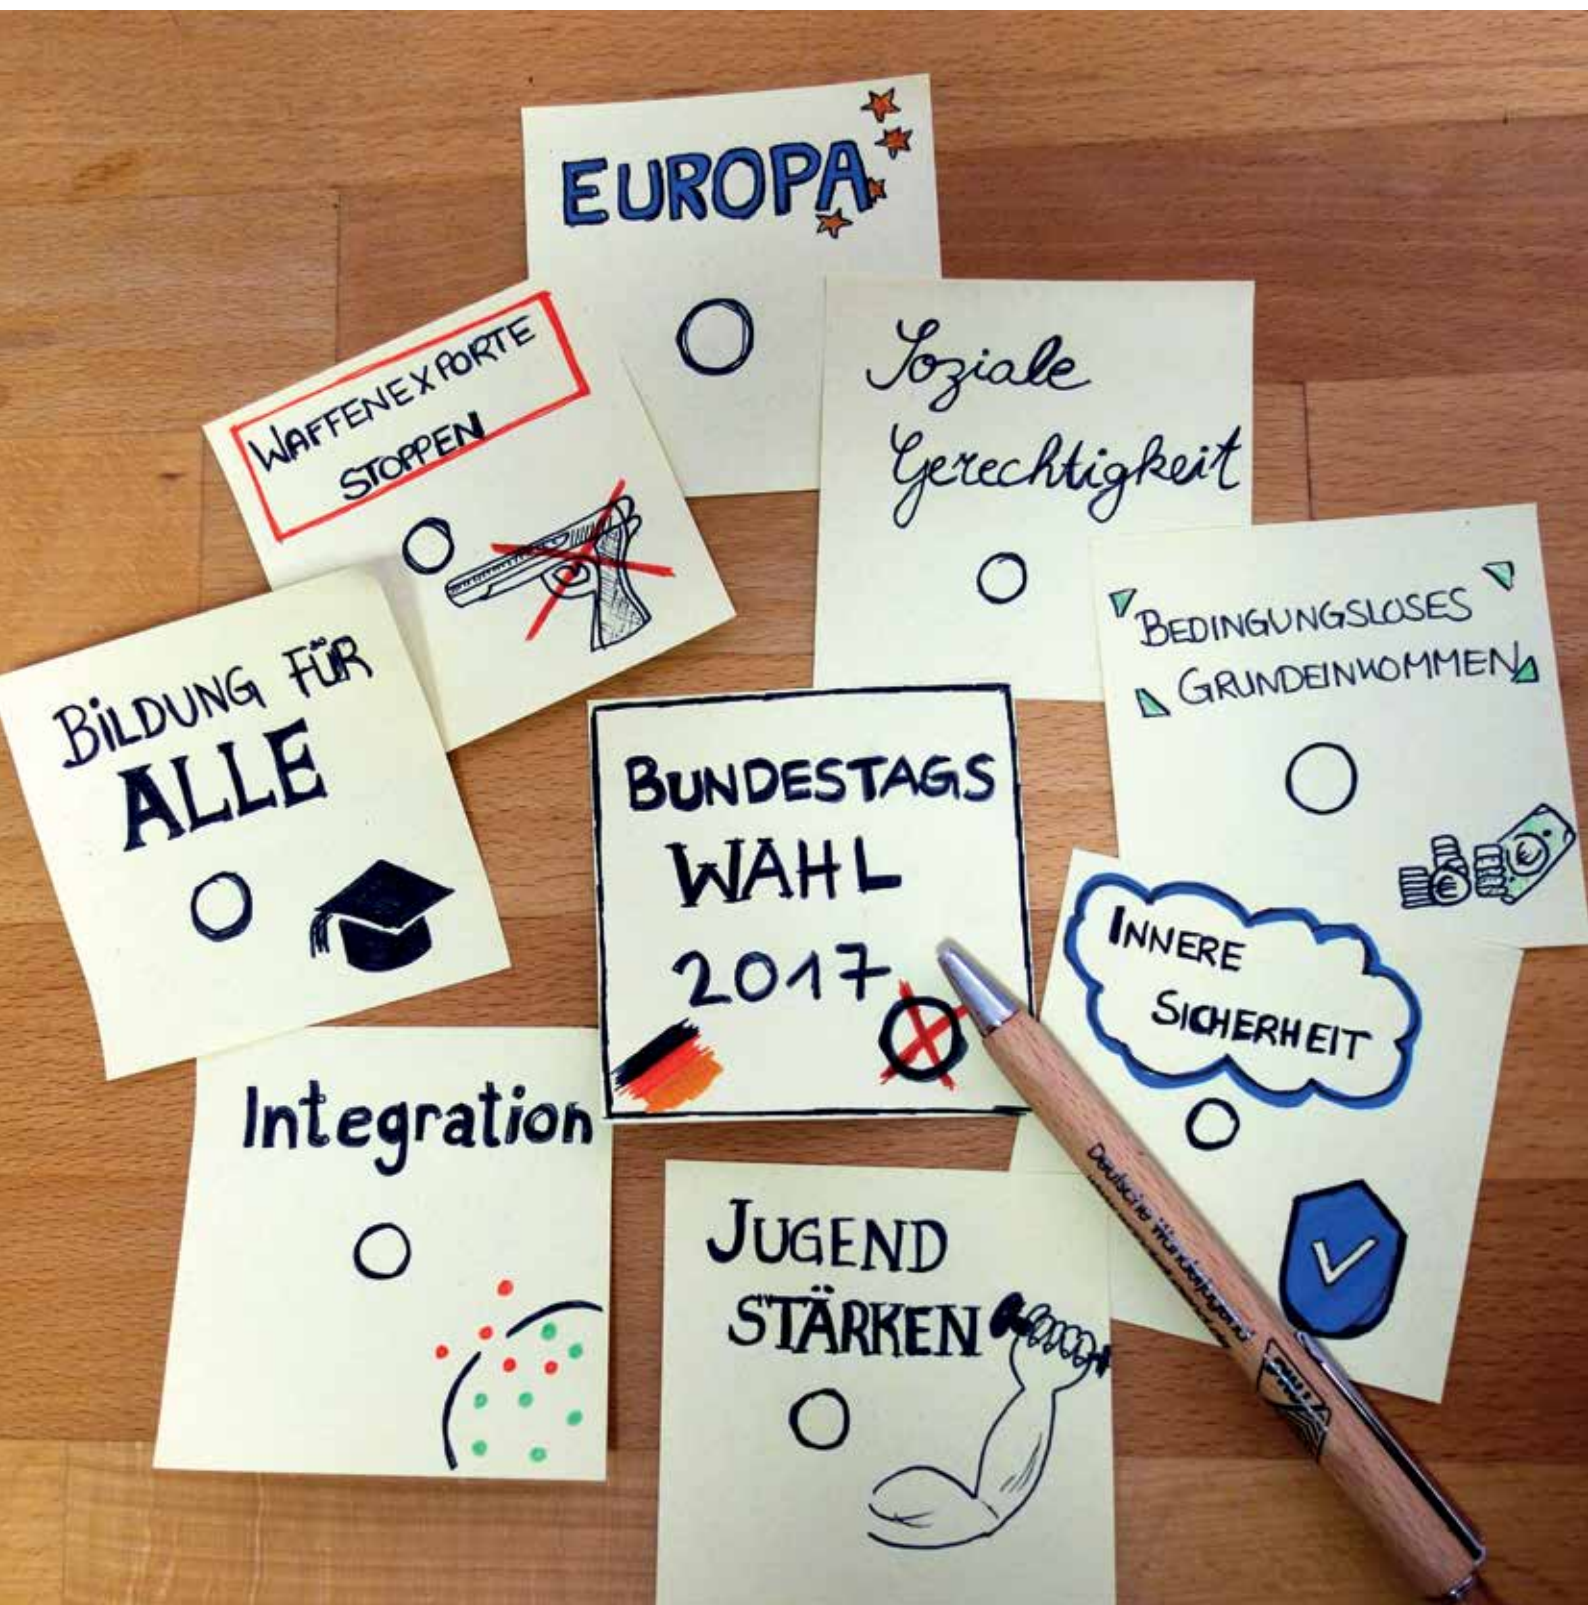 EUROPA
WAFFENEXPORTE
STOPPEN
Soziale
Gerechtigkeit
BEDINGUNGSLOSES
GRUNDEINKOMMEN
BiLDUNG FÜR
ALLE
BUNDESTAGS
WAHL
2017
INNERE
SICHERHEIT
Integration
JUGEND
STÄRKEN
Deutsche Wanderjugend